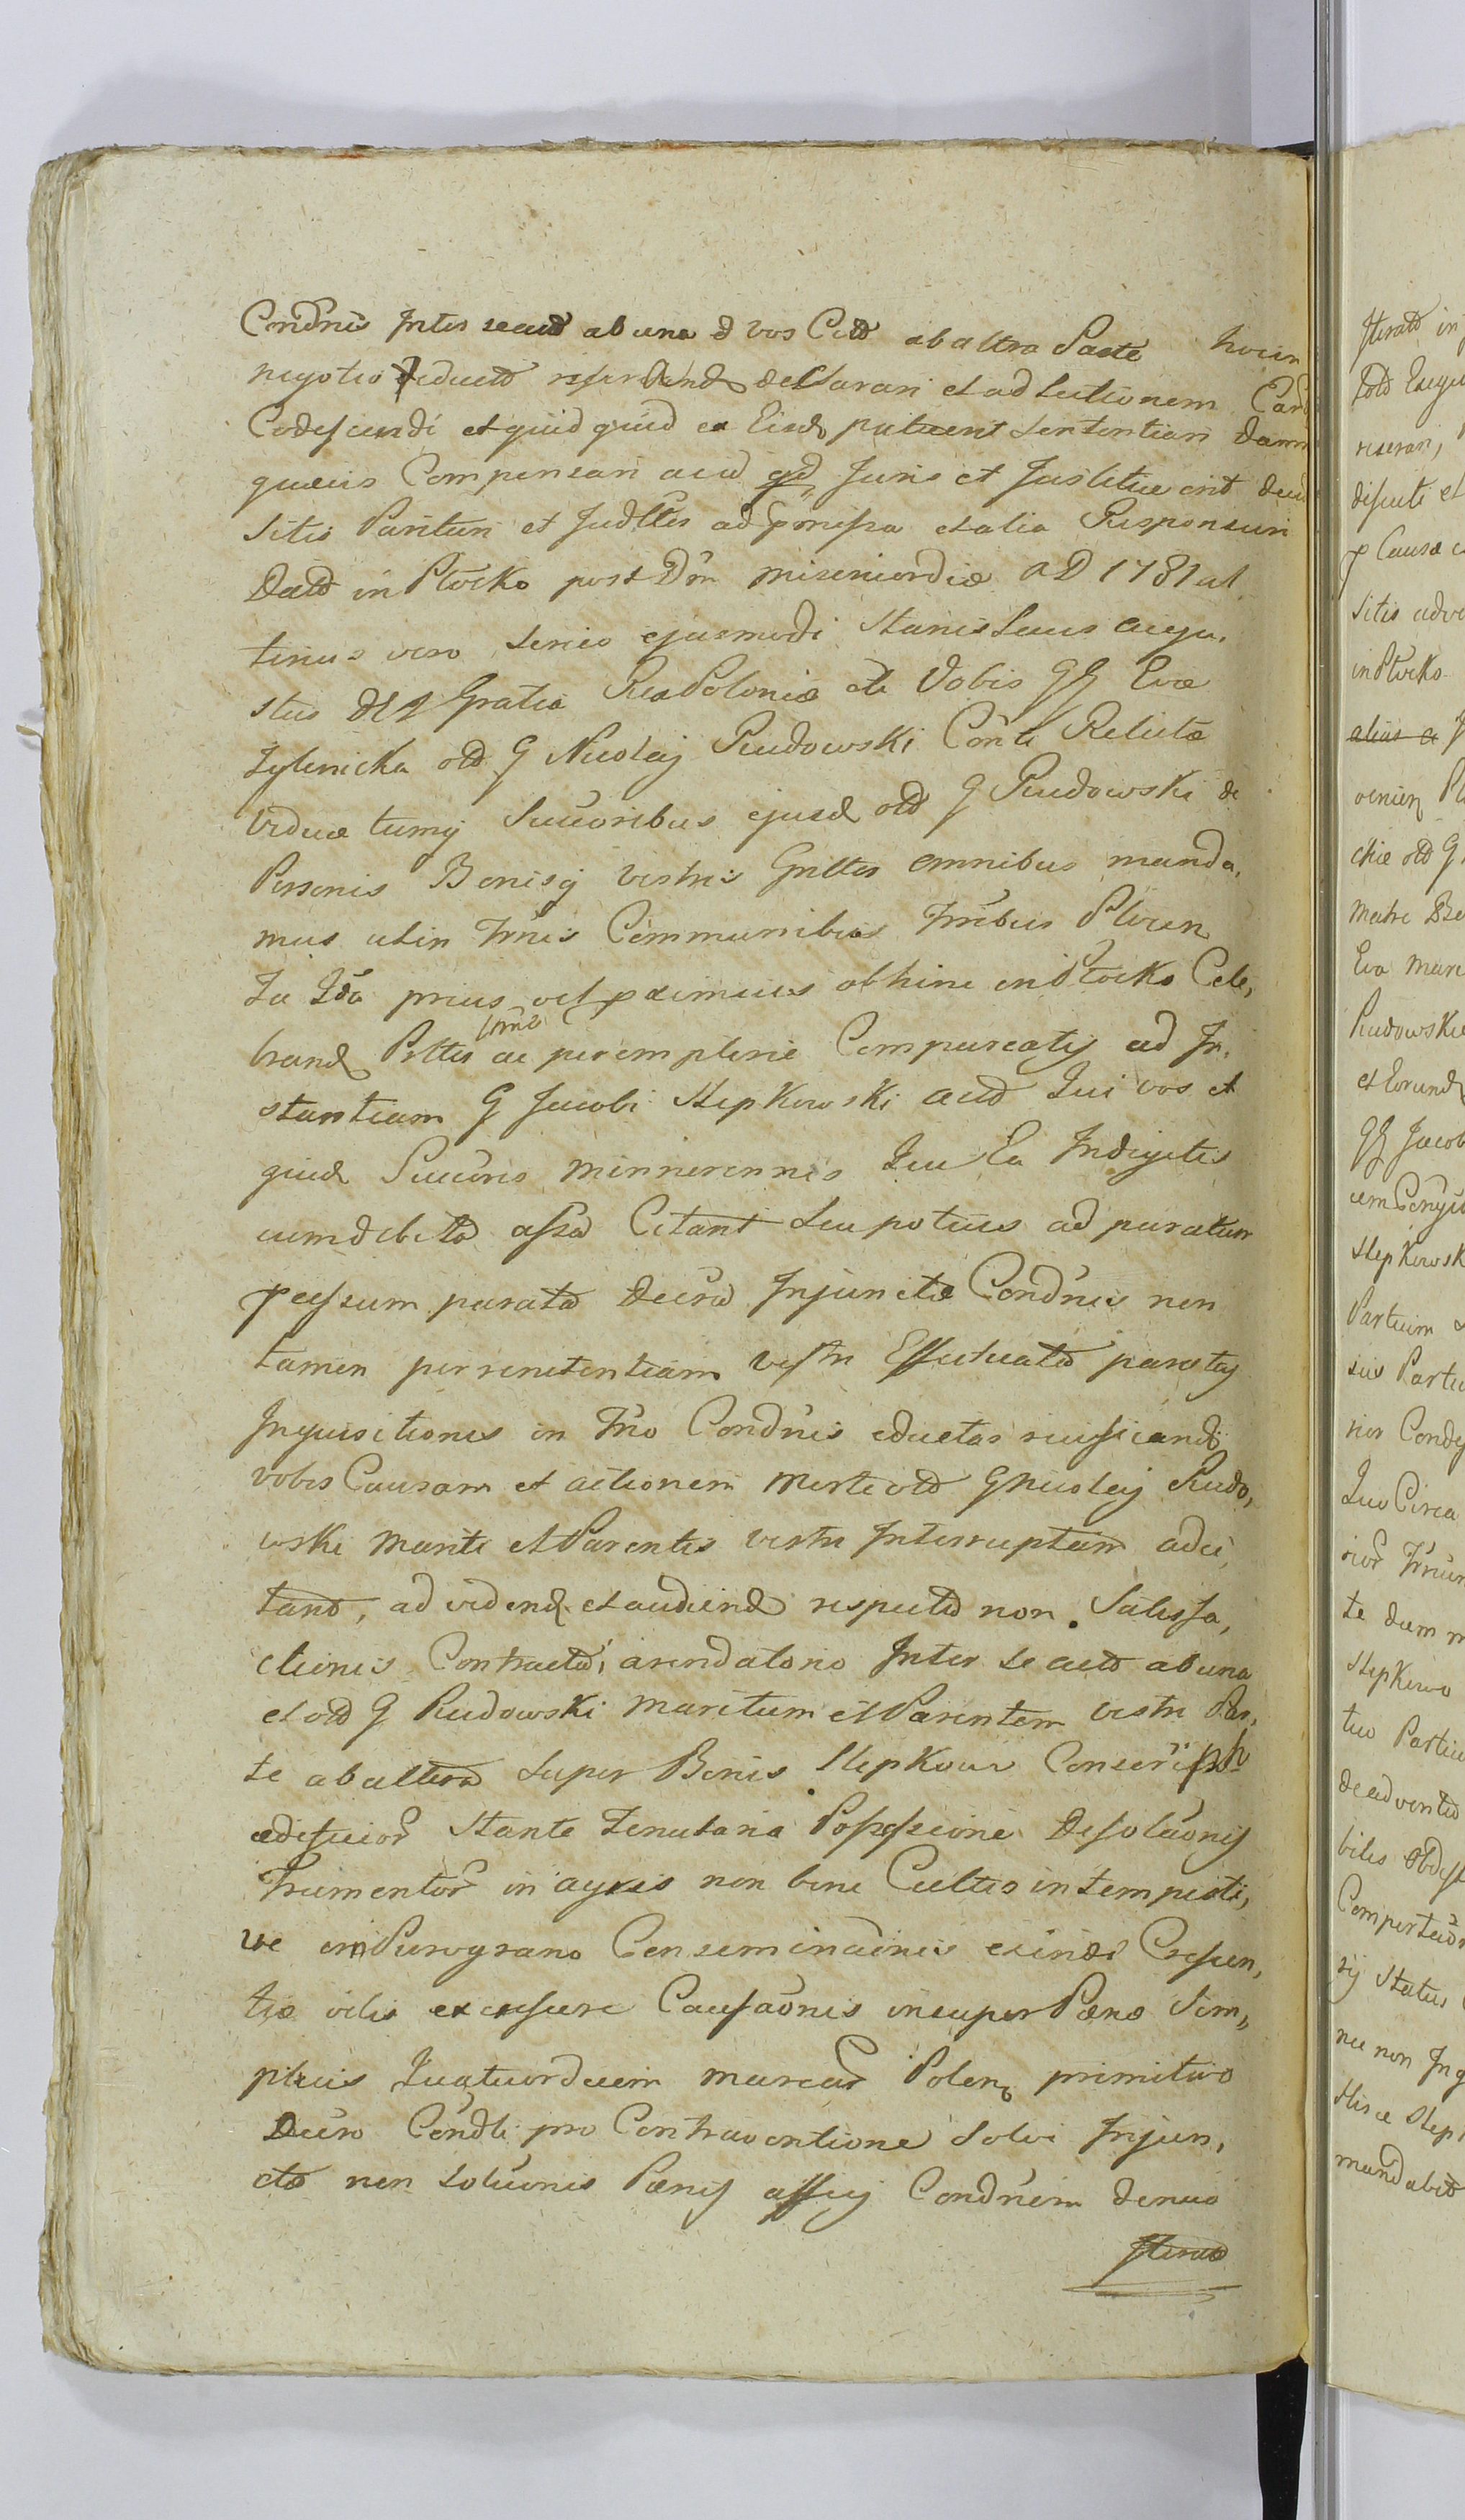 Condnis Inter se actd ab una & vos Cittd ab altra Parte hocin
negotio deductd resarciend declarari et ad Lectionem
Codescendi et quid quid ex Eisd patuerit sententiari damn
quævis Compensari acid qd Juris et Justitiæ erit
sitis Parituri et Judlter ad pmissa et alia Responsuri
Datd in Plocko post Dom misericordiæ AD 1781 al
terius vero series ejusmodi Stanislaus augu,
stus DEI Gratia Rex Poloniæ etc Vobis GG Evæ
old G Nicolaj Rudowski Conti Relictæ
viduæ tumq Succoribus ejusd old G Rudowski de
Personis Bonisq vestris Gnltes omnibus manda,
mus ut in Trnis Communibus Trribus Plocen
prius vel pximius abhinc in Plocko Cele,
brand Pltter ac peremptorie Compareatis ad In,
stantiam G Jacobi Stepkowski actd Qui vos et
quid Succoris minnorennes seu Ea Indigetis
cum debita assa Citant seu potius ad paratum
pcessum paratd decro Injunctæ Condnis non
tamen per renitentiam vestr Effectuatd
Inquisitiones in Trno Condnis eductas
vobis Causam et actionem morte old G Nicolaj Rudo,
wski mariti et Parentis vestri Interruptam adci,
tand, ad vidend et audiend respectd non Satisfa,
ctionis Contractui arendatorio Inter se actd ab una
et old G Rudowski maritum et Parentem vestr Par,
te ab altera super Bonis Stepkowo Conscript
ædificior Stante Tenutaria Possessione Desolaonis
Frumentor in agris non bene Cultis intempesti,
ve in Purograno Conseminaonis exinde Crescen,
tiæ vilis excrescere Causaonis insuper Pænæ Sim,
plicis Quatuordecim marcar Polon primitivo
Decro Condli pro Contraventione Solvi Injun,
ctæ non Soluonis Pænis Condnem denuo
Iteratd

Iteratd in
toto Exequ
reservari,
discuti et
p Causæ
Sitis adve
in Plocko
alias a
chiæ old G
matre
Eva
Rudowski
et Eorund
GG Jacob
Stepkowsk
Partium
sus Parti
Quo Circa
te dum
Stepkowo
tuo Partiu
de adventd
Comportaon
rij Status
nec non Inq
Stepk
mandabit